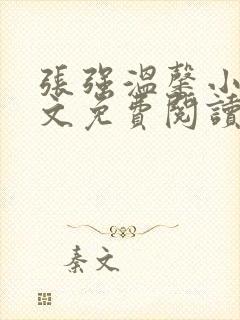 張强溫馨小
文免費閱讀
秦文